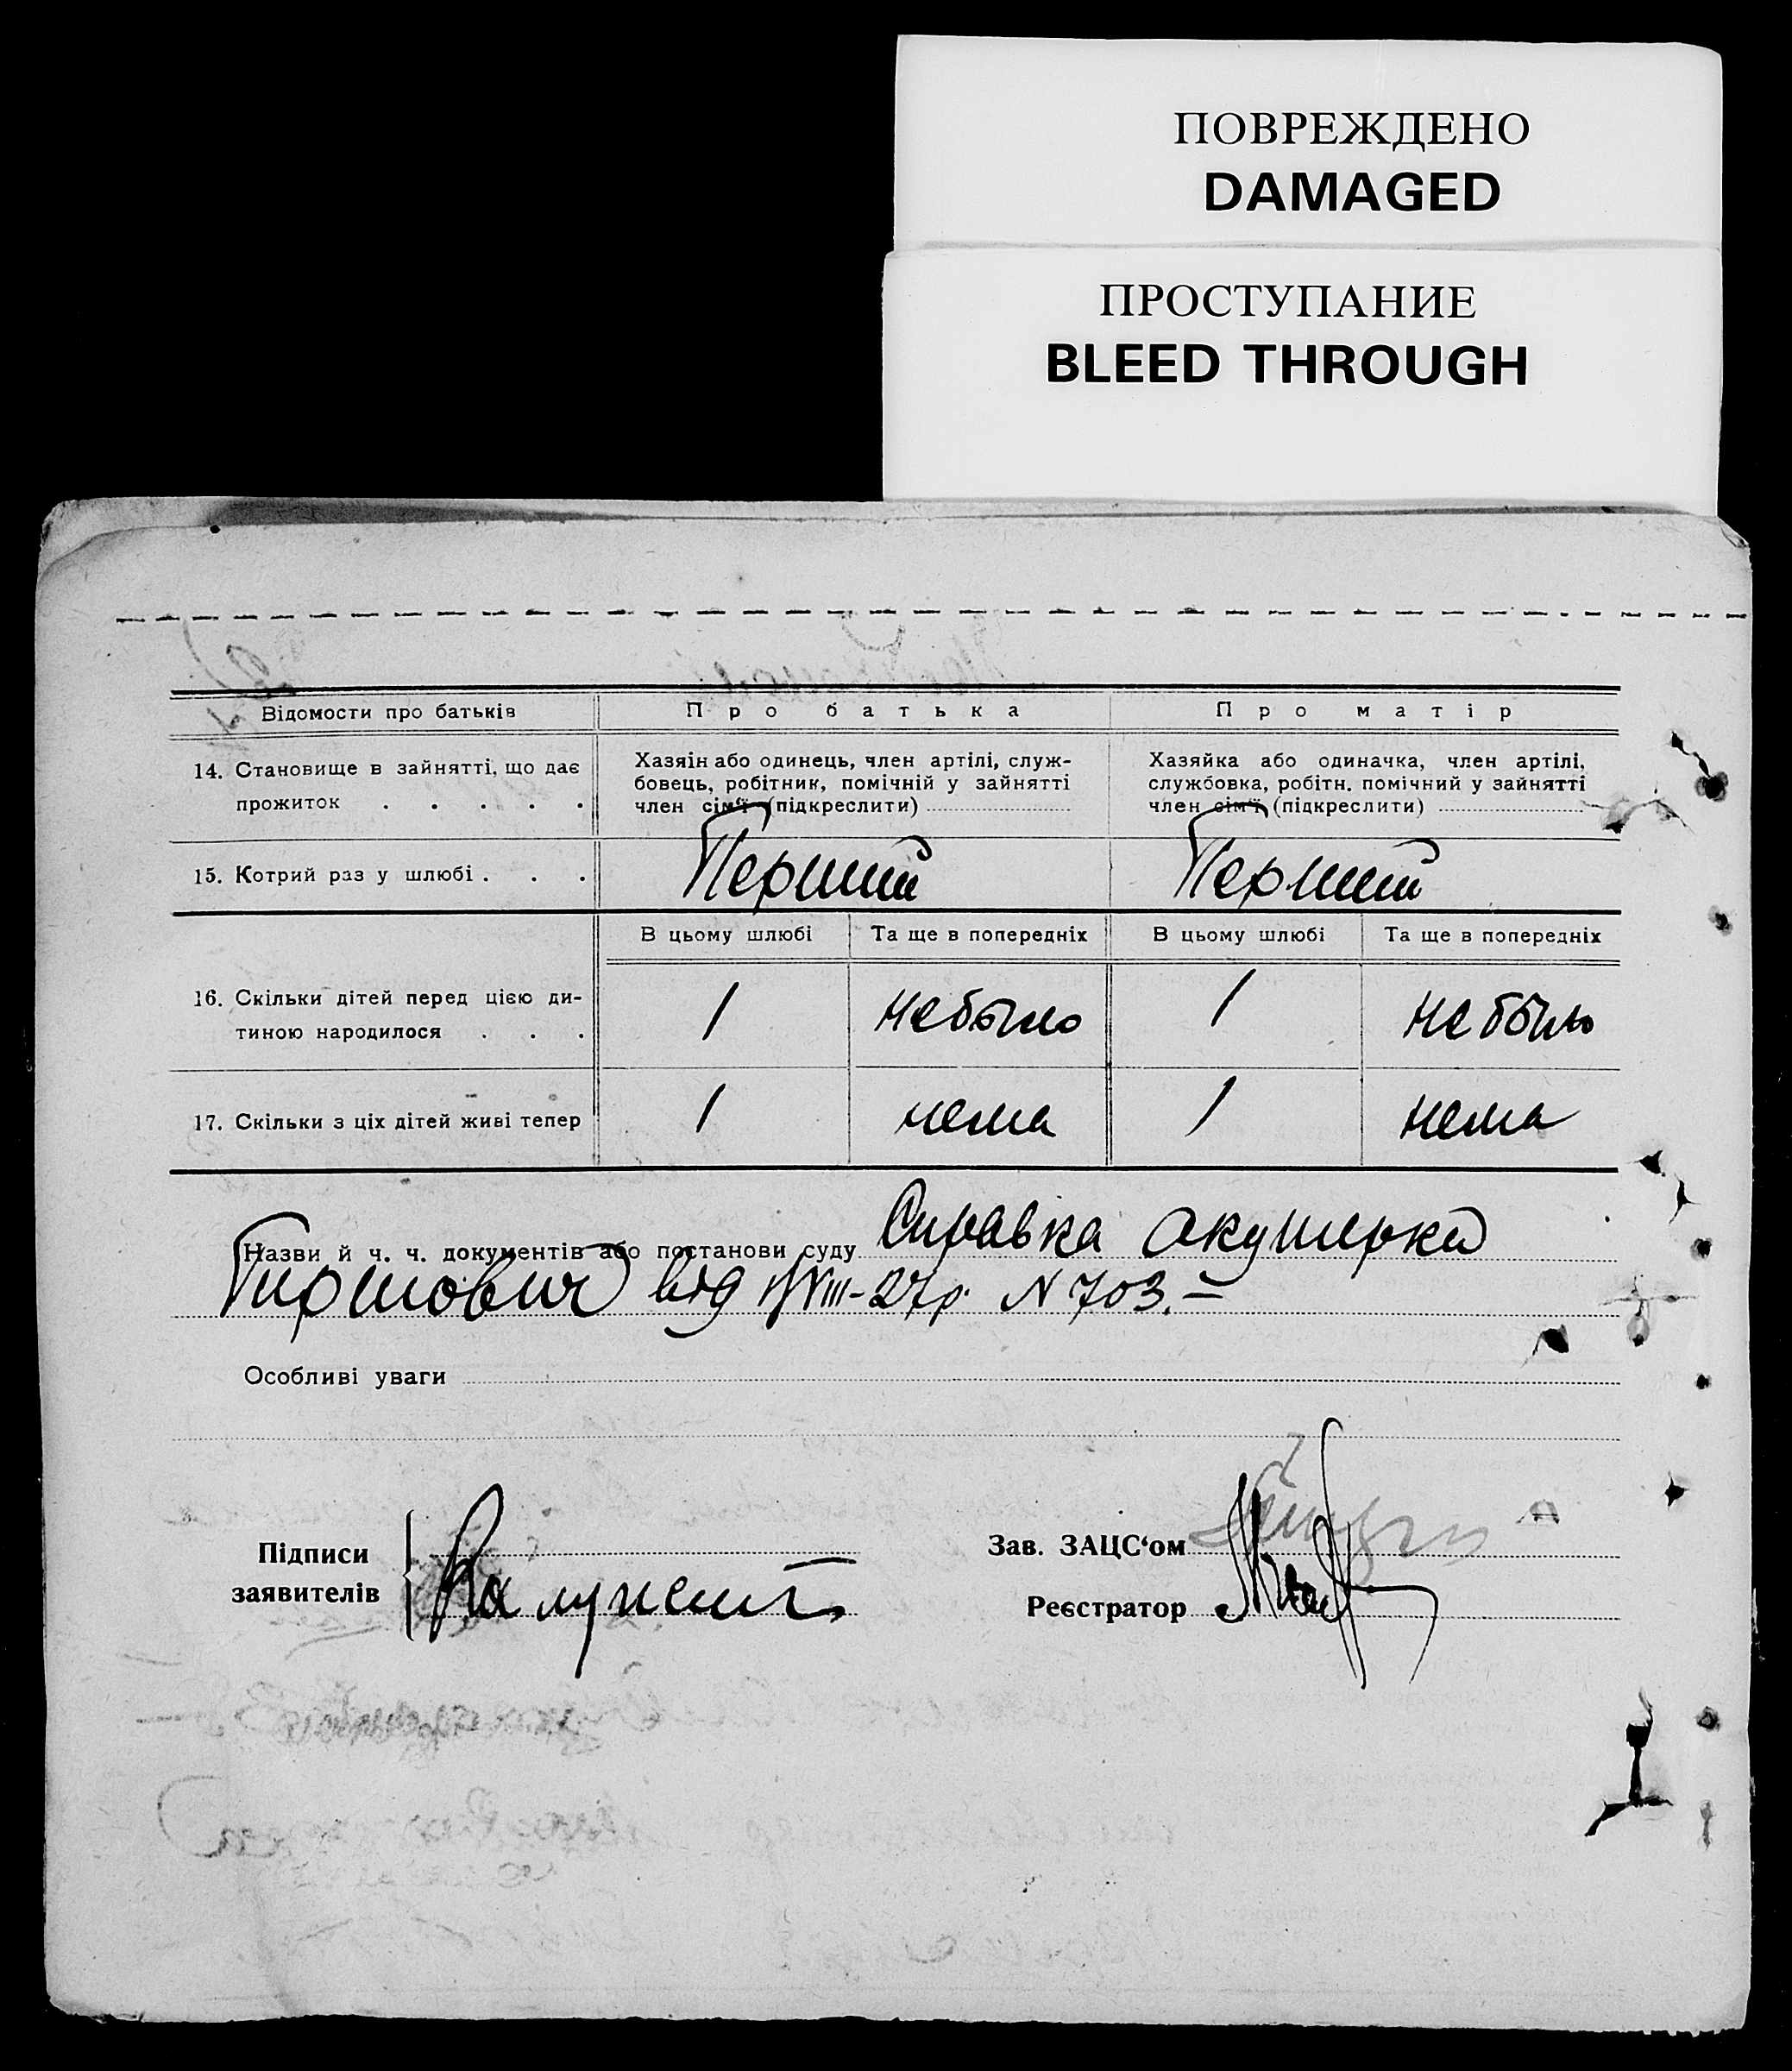 ПОВРЕЖДЕНО
DAMAGED
ПРОСТУПАНИЕ
BLEED THROUGH
Відомости про батьків
Про батька
Про матір
14. Становище в зайнятті, що дає
прожиток . . . . .
Хазяін або одинець, член артілі, служ-
бовець, робітник, помічній у зайнятті
член сім'ї (підкреслити)
Хазяйка або одиначка, член артілі,
службовка, робітн. помічний у зайнятті
член сім'ї (підкреслити)
15. Котрий раз у шлюбі . . .
Перший
Перший
В цьому шлюбі
Та ще в попередніх
В цьому шлюбі
Та ще в попередніх
16. Скільки дітей перед цією ди-
тиною народилося . . .
1
не было
1
не было
17. Скільки з ціх дітей живі тепер
1
нема
1
нема
Назви й ч. ч. документів або постанови суду Справка акушерки
від VIII-27р. N 703.-
Особливі уваги
Підписи
заявителів
Зав. ЗАЦС‘ом
Реєстратор